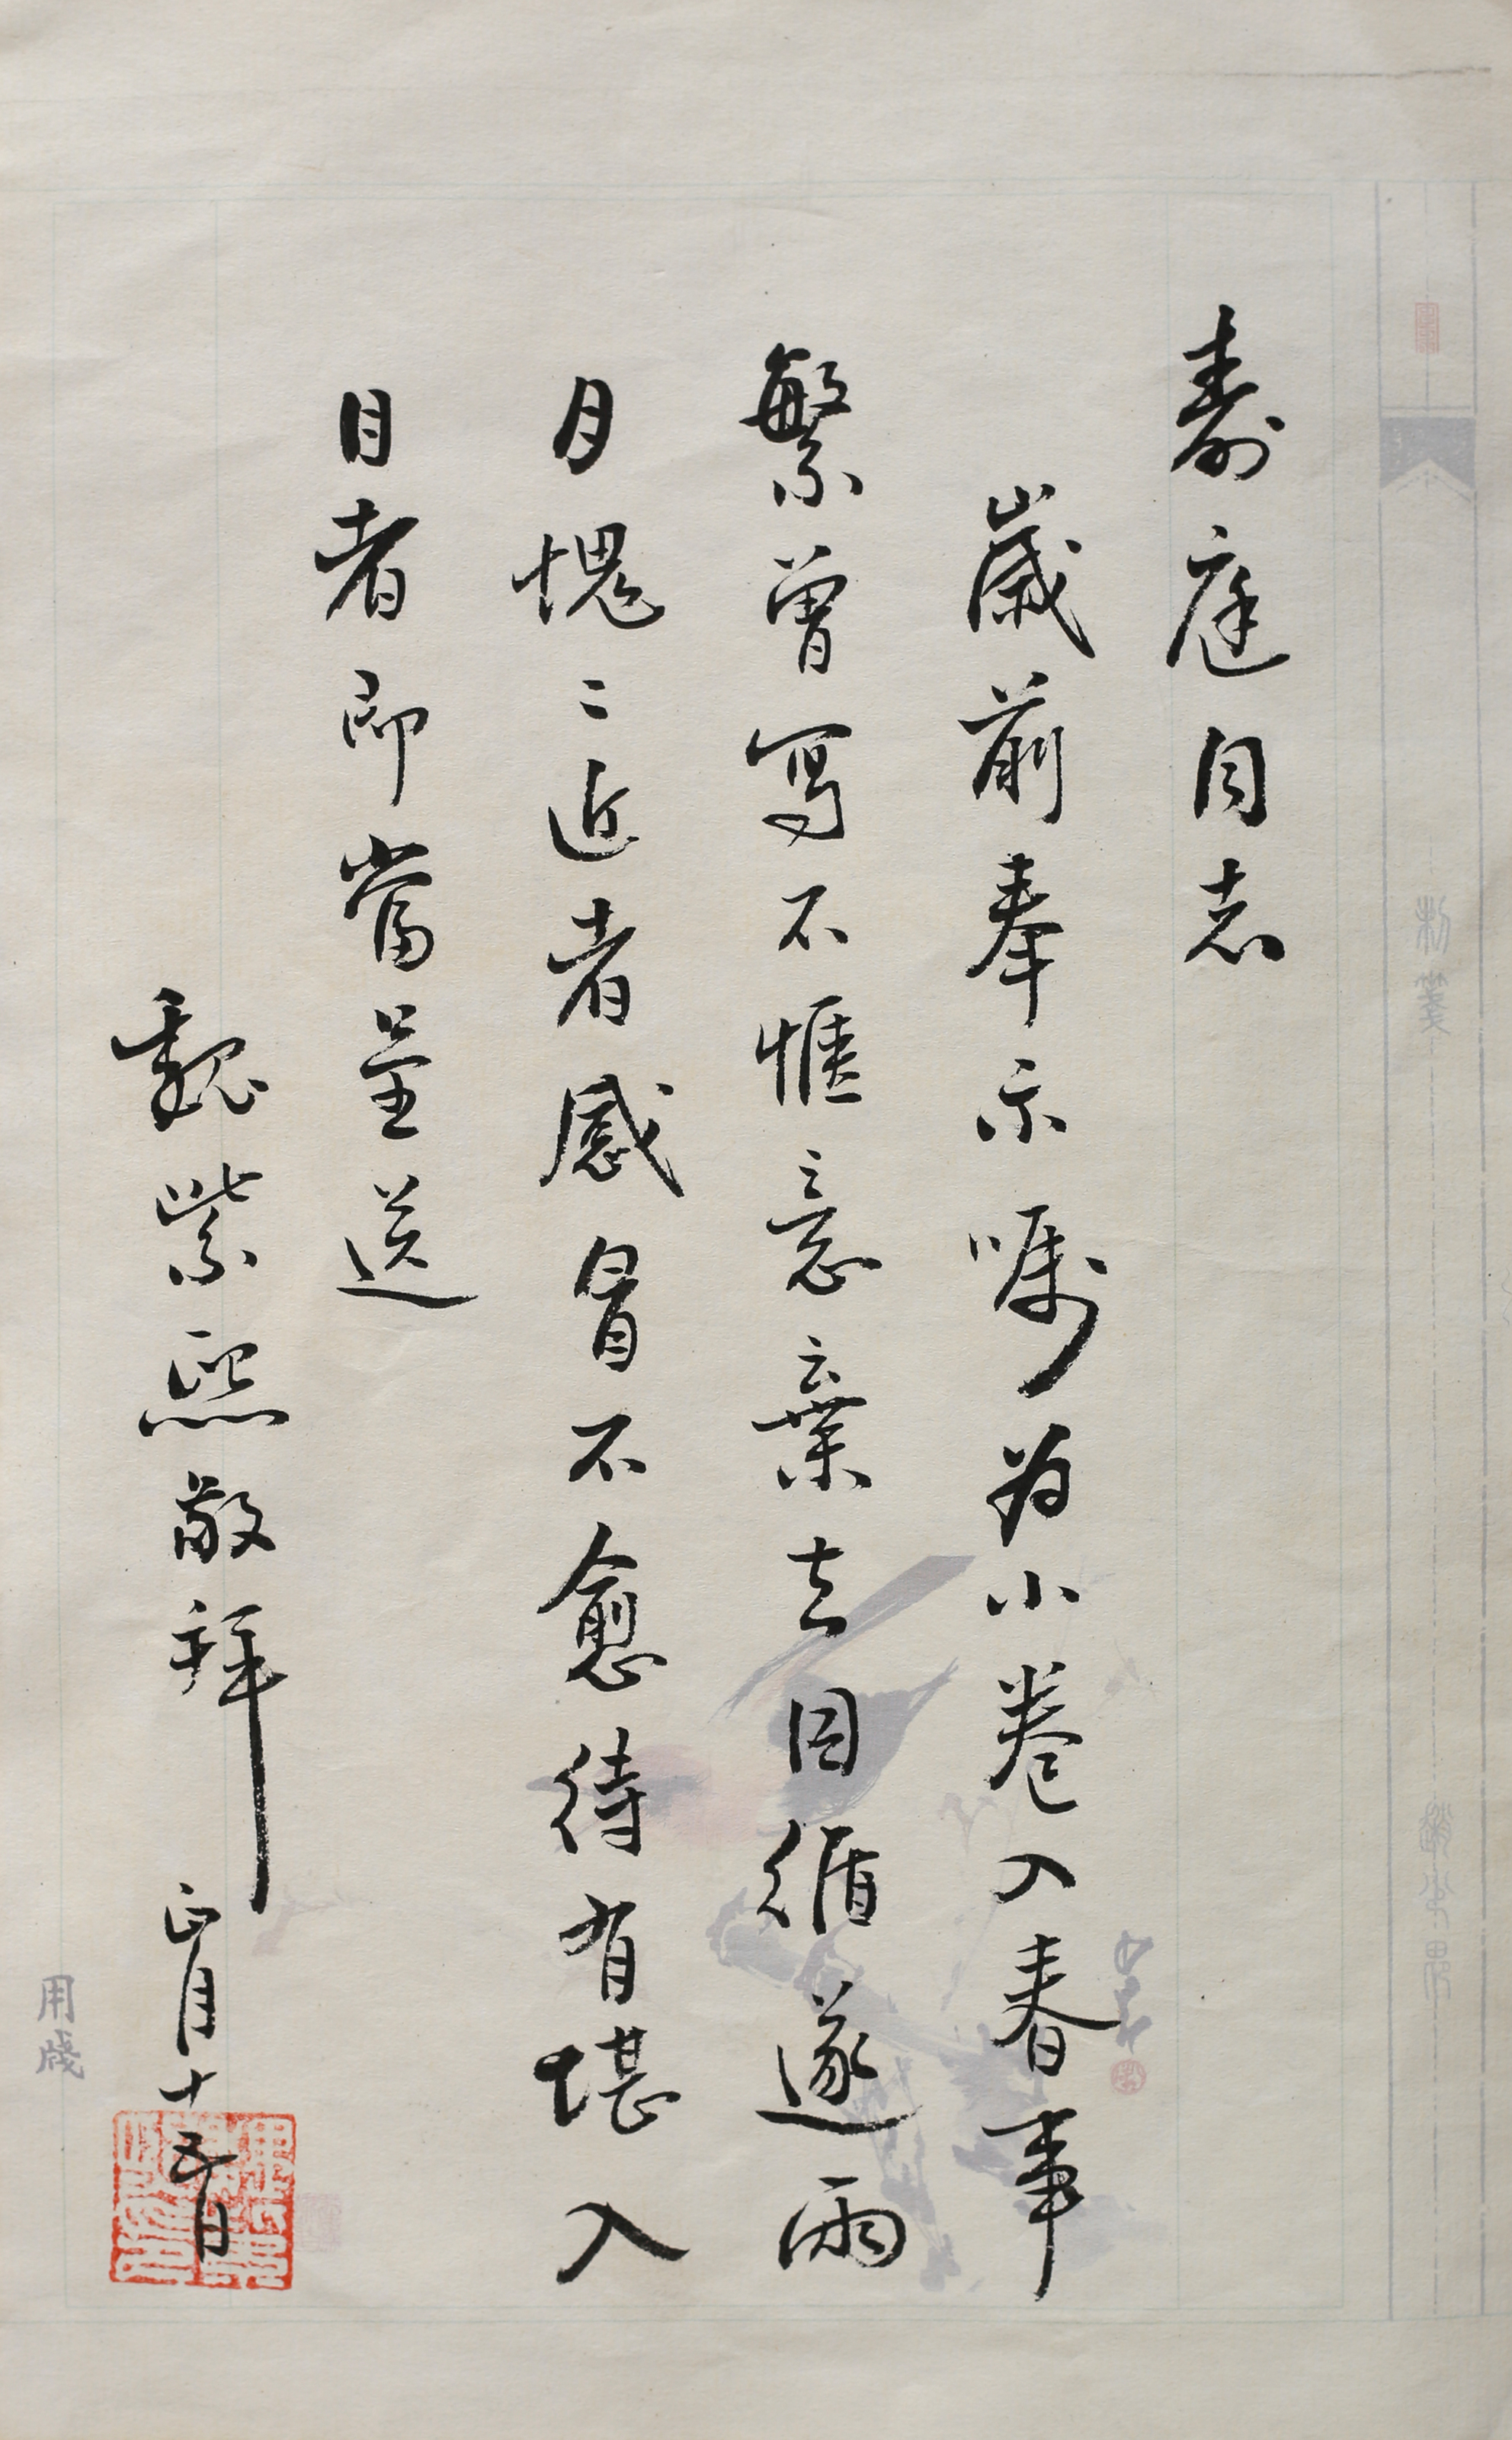 壽庭同志
歲前奉示嘱为小卷入春事
繁曾寫不惬意棄去因循遂兩
月愧〻近者感冒不愈待有堪入
目者即當呈送
魏紫熙敬拜 正月十五日
用箋